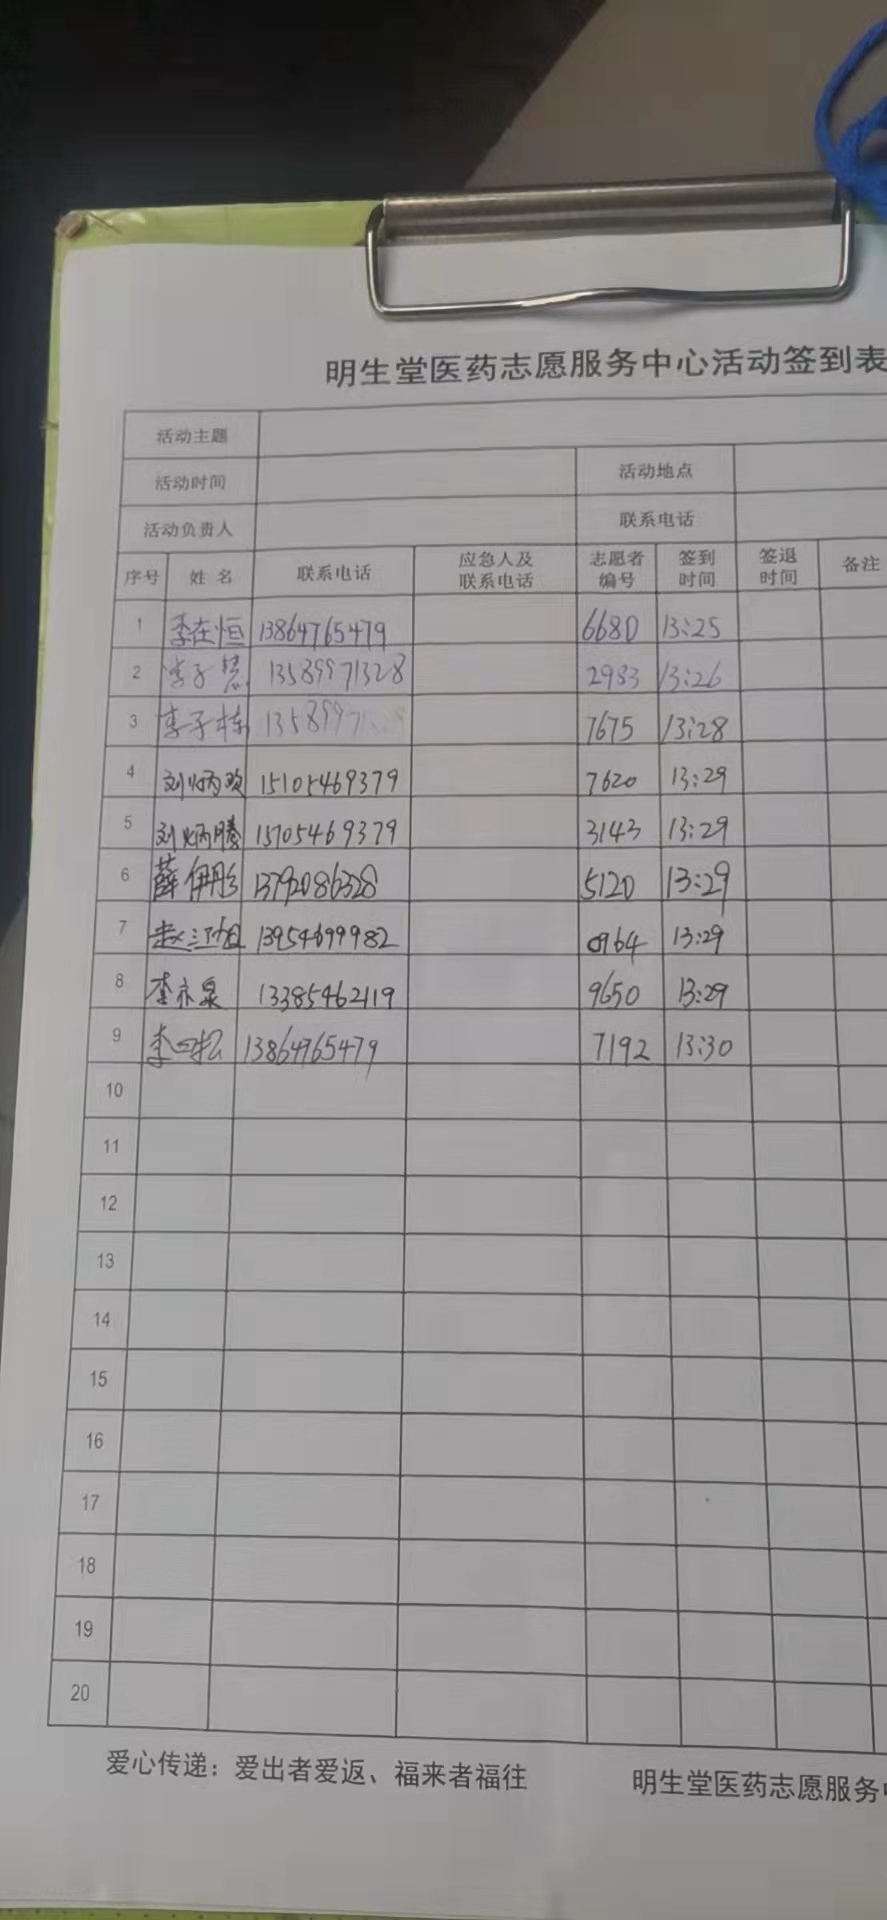 明生堂医药志愿服务中心活动签到表
活动主题
活动时间 活动地点
活动负责人 联系电话
序号 姓名 联系电话 应急人及联系电话 志愿者编号 签到时间 签退时间 备注
1 李在恒 13864765479 6680 13:25
2 李子慧 13589971328 2983 13:26
3 李子栋 13589971 7675 13:28
4 刘炳欢 15105469379 7620 13:29
5 刘炳腾 15105469379 3143 13:29
6 薛伊彤 13792086328 5120 13:29
7 赵 13954699982 0964 13:29
8 李亦泉 13385462119 9650 13:29
9 李 松 13864765479 7192 13:30
10
11
12
13
14
15
16
17
18
19
20
爱心传递：爱出者爱返、福来者福往 明生堂医药志愿服务中